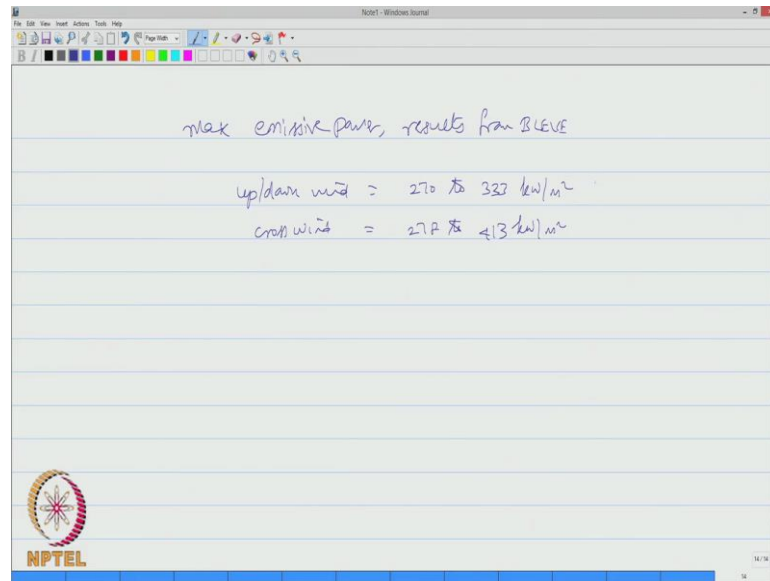 Note1 - Windows Journal
File Edit View Insert Actions Tools Help
Page Width
B I
max emissive power, results from BLEVE
up/down wind = 270 to 333 kW/m²
cross wind = 278 to 413 kW/m²
NPTEL
14 / 14
14